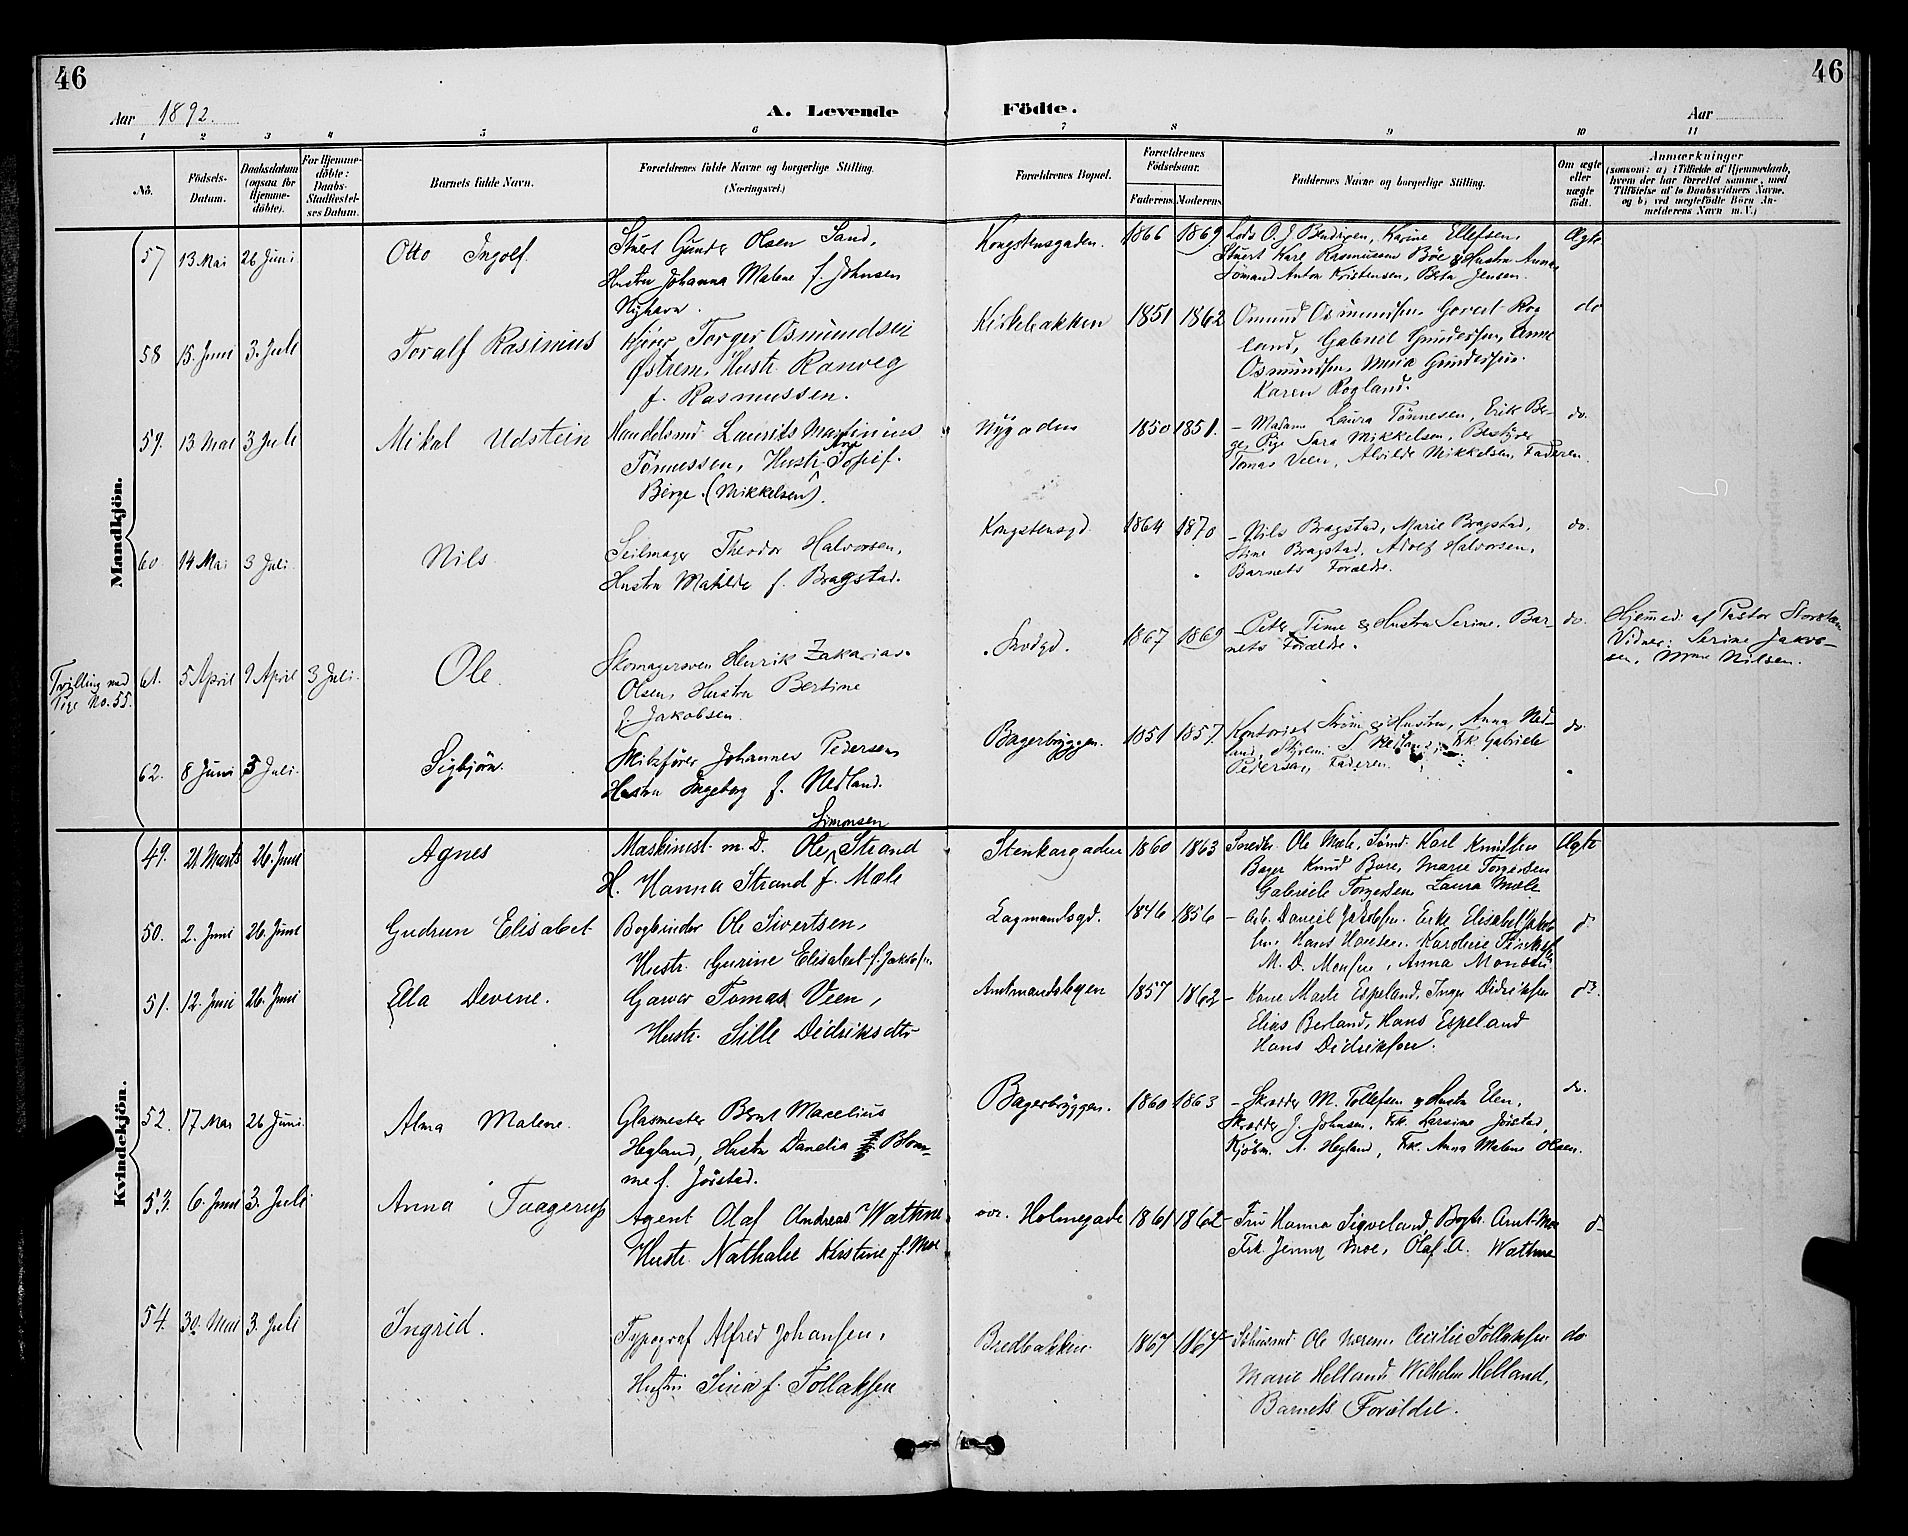 46
46
Aar 1892.
A. Levende Födte.
Aar
1 2 3 4 5 6 7 8 9 10 11
No.
Födsels-Datum.
Daabsdatum (ogsaa for Hjemme-döbte).
For Hjemme-döbte: Daabs-Stadfæstel-ses Datum.
Barnets fulde Navn.
Forældrenes fulde Navne og borgerlige Stilling. (Næringsvei.)
Forældrenes Bopæl.
Forældrenes Födselsaar.
Faderens Moderens
Faddernes Navne og borgerlige Stilling.
Om ægte eller uægte födt.
Anmærkninger
(saasom: a) i Tilfælde af Hjemmedaab, hvem der har forrettet samme, med Tilföielse af to Daabsvidners Navne, og b) ved uægtefödte Börn An-melderens Navn m. V.)
Mandkjön.
57 13 Mai 26 Juni Otto Ingolf
Stuert Gunder Olsen Sand,
Hustru Johanna Malene f. Johnsen
Nyhavn.
Kongstensgaden. 1866 1869
Lods O. J. Bendixen, Karine Ellefsen,
Stuert Karl Rasmussen Böe & Hustru Anna
Sömand Anton Kristensen, Berta Jensen.
Ægte
58 15. Juni 3. Juli Toralf Rasinius
Torger Osmundsen
Østrem, Hustr. Ranveg
f. Rasmussen.
Kirkebakken 1851 1862
Osmund Osmundsen, Rog
land, Gabriel Gundersen, Anne
Osmundsen, Maria Gundersen.
Karen Rogland.
do
59. 13 Mai 3 Juli Mikal Udstein
Handelsmd. Laurits Martinius
Tönnessen, Hustr. Ana Sofie f.
Berge. (Mikkelsen).
Nygaden 1850 1851.
– Madam Laura Tönnesen, Erik Ber-
ge, Pige Sara Mikkelsen, Bestyrer
Tomas Veen, Alvilde Mikkelsen, Faderen.
do.
60. 14 Mai 3 Juli. Nils
Seilmager Theodor Halvorsen,
Hustru Matilde f. Bragstad.
Kongstensgd. 1864 1870
– Nils Bragstad, Marie Bragstad,
Stine Bragstad, Adolf Halvorsen,
Barnets Forældre.
do.
Tvilling med
Pige No. 55.
61. 5 April 9 April 3 Juli. Ole
Skomagersven Henrik Zakarias
Olsen, Hustru Bertine
f. Jakobsen.
1867 1869
– Peter Time & Hustru Serine, Bar-
nets Forældre.
do.
Hjemmed. af Pastor
Vidner: Serine Jakob-
sen, Nilsen.
62. 8 Juni 3 Juli. Sigbjörn.
Johannes Pedersen
Hustru Ingeborg f. Nedland.
Bagerbryggen. 1851 1857.
Kontorist Ström & Hustru, Anna Ned-
land, Styrem. S. Nedland, Frk. Gabriele
Pedersen, Faderen.
do.
Kvindekjön.
49. 21. Marts 26. Juni Agnes
Simonsen
Maskinist. m. D. Ole Strand
H. Hanna Strand f. Mæle
Stenkargaden 1860 1863
Snedkr. Ole Mæle, Sömd. Karl Knudsen
Bager Knud Bore, Marie Torgersen
Gabriele Torgersen, Laura Mæle
Ægte
50. 2. Juni 26. Juni Gudrun Elisabet
Bogbinder Ole Sivertsen,
Hustr. Gurine Elisabet f. Jakobsen.
Lagmandsgd. 1846 1856
– Arb. Daniel Jakobsen, Enke Elisabet Jakob
sen, Hans Hansen, Karoline
M. D. Monsen, Anna Monsen
d
51. 12. Juni 26. Juni Ella Devine.
Garver Tomas Veen,
Hustr. Sille Didriksdtr
Amtmandsbyen 1857 1862
– Kone Marte Espeland, Inger Didriksen
Elias Berland, Hans Espeland
Hans Didriksen.
do.
52. 17 Mai 26 Juni. Alma Malene.
Glasmester Bernt Marselius
Hegland, Hustru Danelia Blom-
me f. Jörstad.
Bagerbryggen. 1860 1863
– Skrædder M. Tollefsen & Hustru Elen,
Skrædder J. Johnsen, Frk. Larsine Jörstad,
Kjöbm. A. Hegland, Frk. Anna Malene Olsen.
do.
53. 6. Juni 3. Juli Anna Taagerup
Agent Olaf Andreas Wathne
Hustr. Nathalie Kirstine f. Moe
övr. Holmegade 1861 1862
– Fru Hanna Sigveland, Bogtr. Arnt Moe
Frk. Jenny Moe, Olaf A. Wathne
d
54. 30. Mai 3. Juli Ingrid.
Typograf Alfred Johansen,
Hustru Sina f. Tollaksen
Bredbakken 1867 1867
Ole Norem, Cecilie Tollaksen
Marie Helland, Wilhelm Helland,
Barnets Forældre.
do